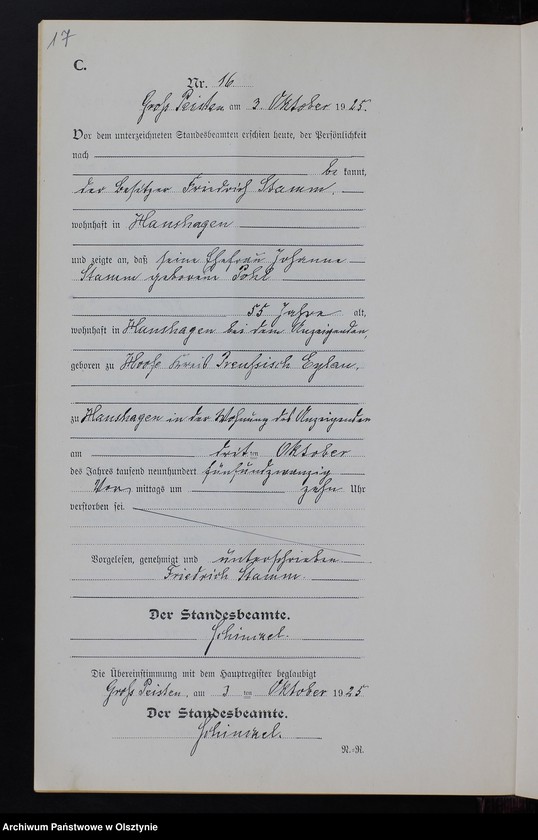 17
C.
Nr. 16
Groß Peisten am 3. Oktober 1925.
Vor dem unterzeichneten Standesbeamten erschien heute, der Persönlichkeit
nach
be kannt,
der Besitzer Friedrich Stamm,
wohnhaft in Hanshagen
und zeigte an, daß seine Ehefrau Johanne
Stamm geborene Pohl
55 Jahre alt,
wohnhaft in Hanshagen bei dem Anzeigenden,
geboren zu Hoofe Kreis Preußisch Eylau,
zu Hanshagen in der Wohnung des Anzeigenden
am dritten Oktober
des Jahres tausend neunhundert fünfundzwanzig
Vor mittags um zehn Uhr
verstorben sei.
Vorgelesen, genehmigt und unterschrieben
Friedrich Stamm.
Der Standesbeamte.
Schinkel.
Die Übereinstimmung mit dem Hauptregister beglaubigt
Groß Peisten, am 3 ten Oktober 1925
Der Standesbeamte.
Schinkel.
N.=R.
Archiwum Państwowe w Olsztynie